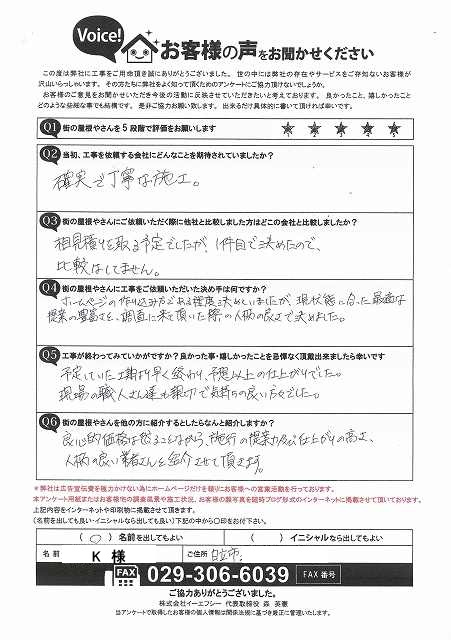 Voice!
お客様の声をお聞かせください
この度は弊社に工事をご用命頂き誠にありがとうございました。世の中には弊社の存在やサービスをご存知ないお客様が
沢山いらっしゃいます。その方たちに弊社をよく知って頂くためのアンケートにご協力頂けないでしょうか。
お客様のご意見をお聞かせいただき今後の活動に反映させていただきたいと考えております。良かったこと、嬉しかったこと
どのような些細な事でも結構です。是非ご協力お願い致します。出来るだけ具体的に書いて頂ければ幸いです。
Q1 街の屋根やさんを5段階で評価をお願いします
1 2 3 4 5
Q2 当初、工事を依頼する会社にどんなことを期待されていましたか?
確実で丁寧な施工。
Q3 街の屋根やさんにご依頼いただく際に他社と比較しました方はどこの会社と比較しましたか?
相見積りを取る予定でしたが、1件目で決めたので、
比較はしてません。
Q4 街の屋根やさんに工事をご依頼いただいた決め手は何ですか?
ホームページの作り込み方である程度決めていましたが、現状態に合った最適な
提案の豊富さと、調査に来て頂いた際の人柄の良さで決めました。
Q5 工事が終わってみていかがですか?良かった事・嬉しかったことを忌憚なく頂戴出来ましたら幸いです
予定していた工期より早く終わり、予想以上の仕上がりでした。
現場の職人さん達も親切で気持ちの良い方々でした。
Q6 街の屋根やさんを他の方に紹介するとしたらなんと紹介しますか?
良心的価格は然ることながら、施行の提案力及び仕上がりの高さ、
人柄の良い業者さんと紹介させて頂きます。
＊弊社は広告宣伝費を極力かけない為にホームページだけを頼りにお客様への営業活動を行っております。
本アンケート用紙またはお客様宅の調査風景や施工状況、お客様の顔写真を随時ブログ形式のインターネットに掲載させて頂いております。
上記内容をインターネットや印刷物に掲載させて頂きます。
(名前を出しても良い・イニシャルなら出しても良い)下記の中から〇印をお付下さい。
(○)名前を出してもよい ( )イニシャルなら出してもよい
名前 K 様 ご住所 日立市
FAX 029-306-6039 FAX番号
ご協力ありがとうございました。
株式会社イーエフシー 代表取締役 森 英憲
当アンケートで取得したお客様の個人情報は関係法規に基づき厳正に管理いたします。